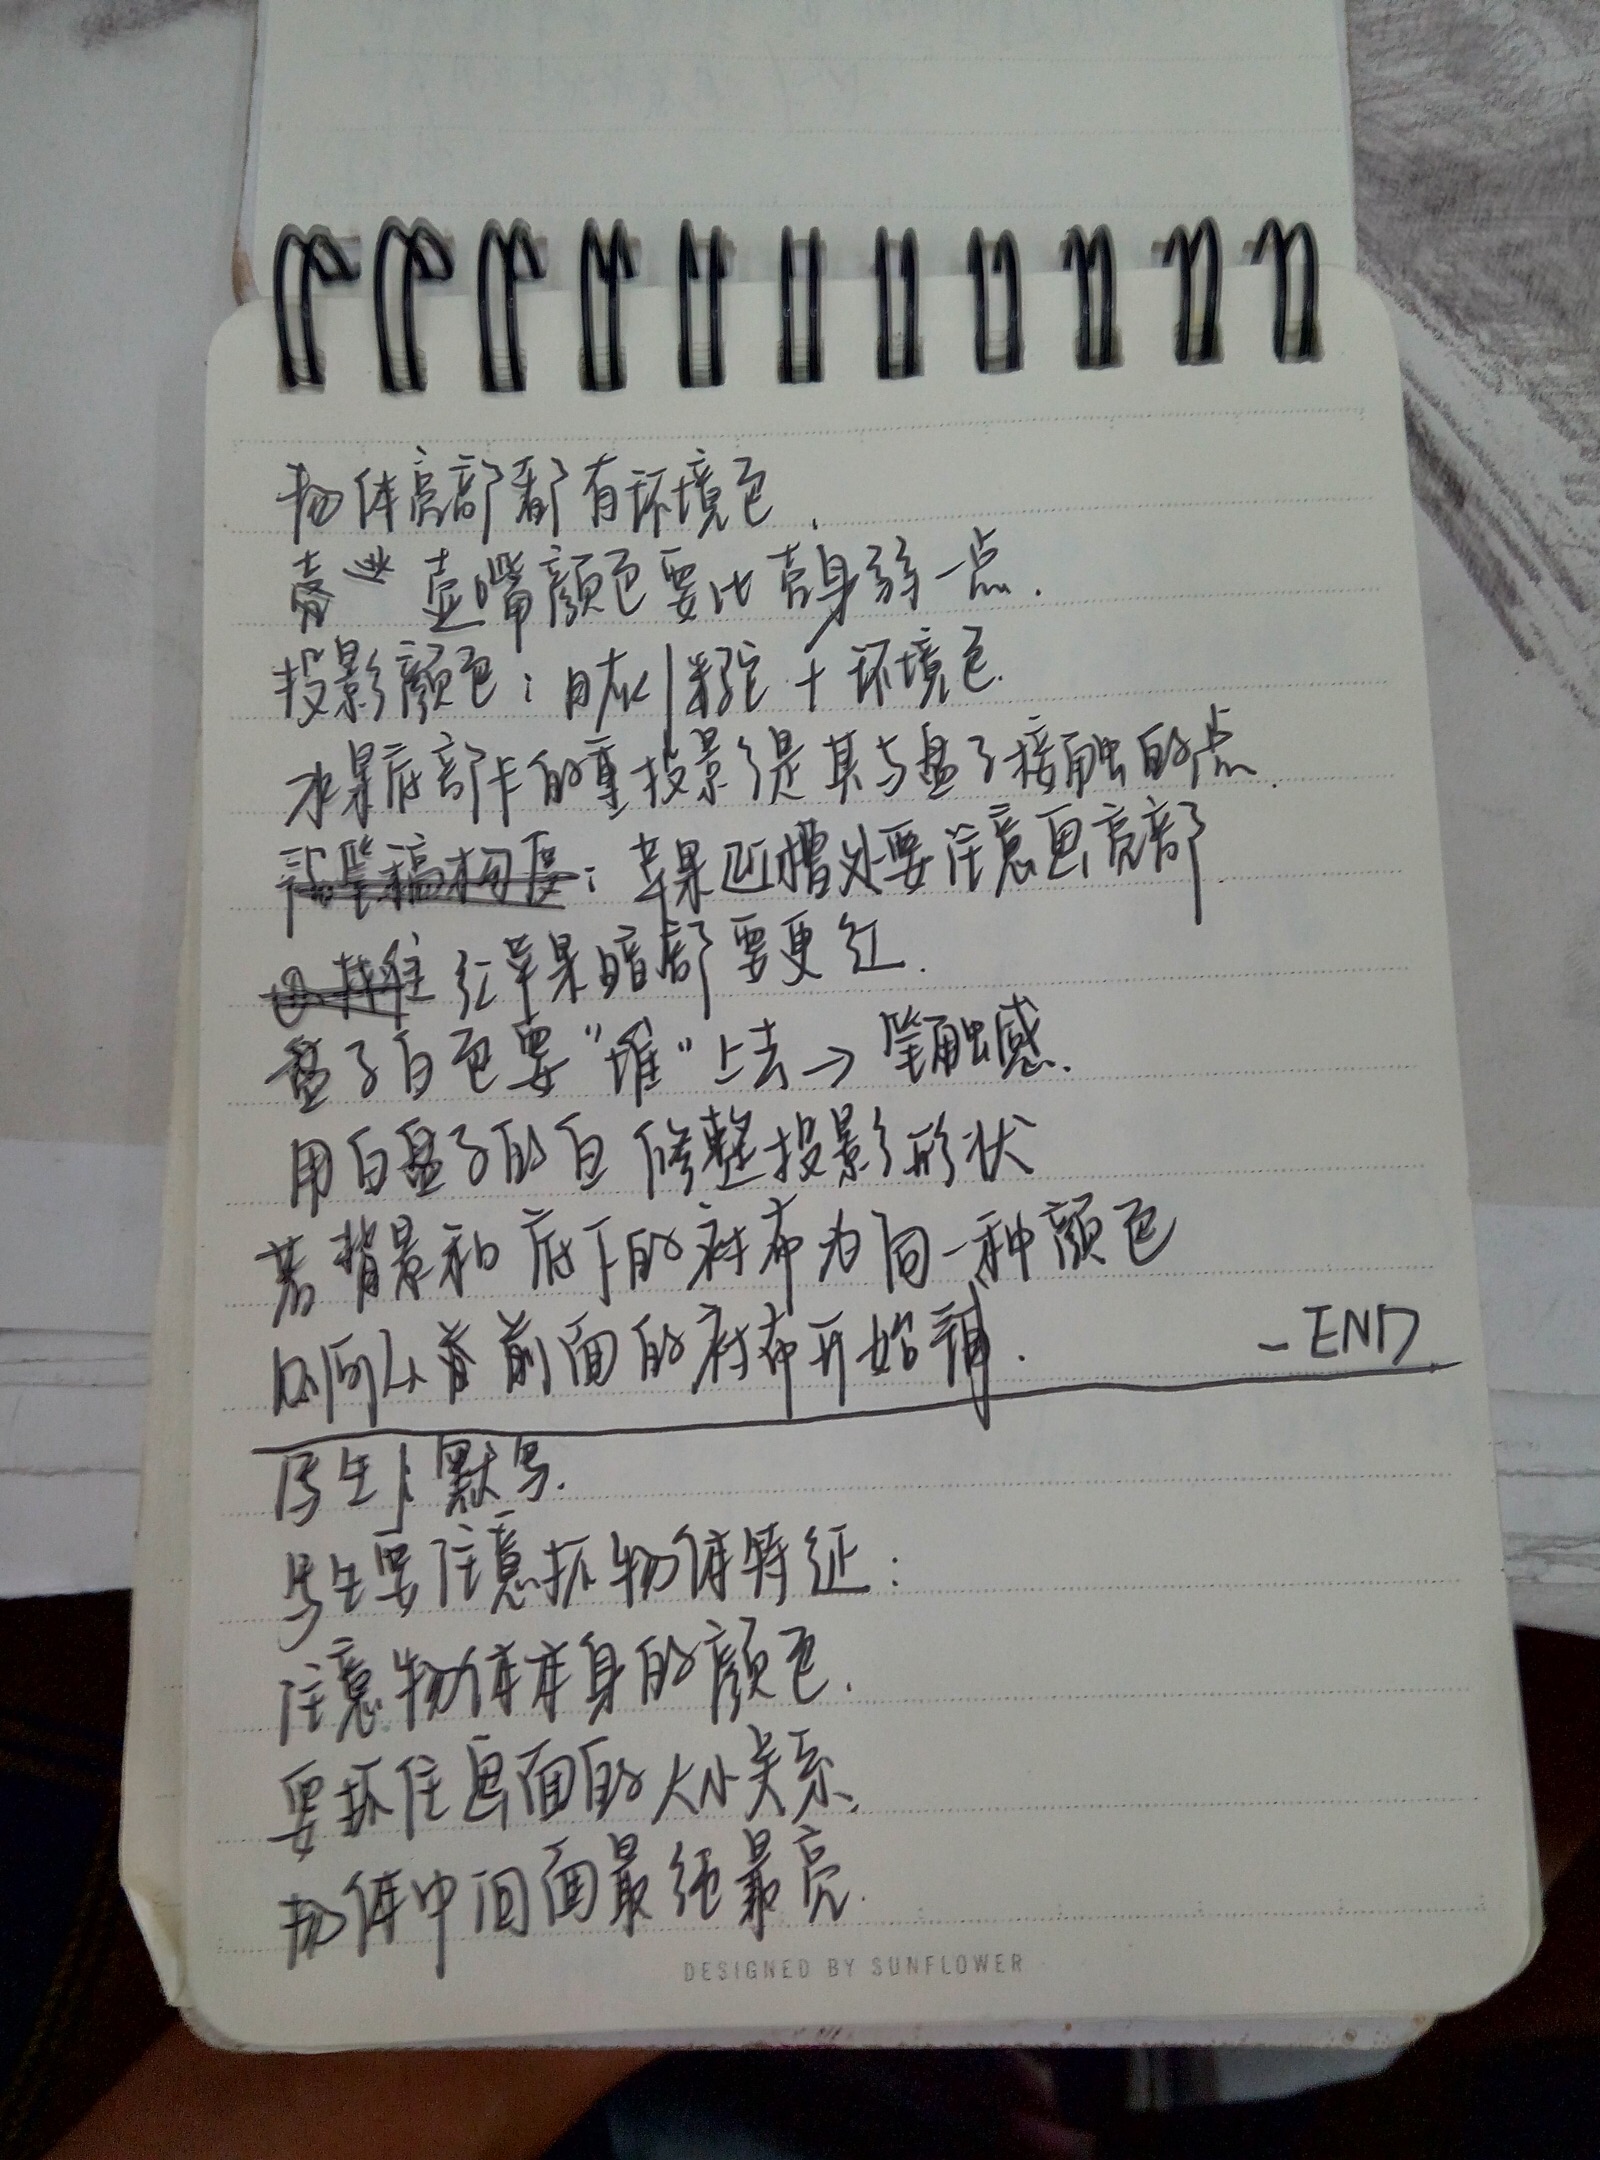 物体亮部都有环境色.
壶嘴颜色要比壶身弱一点.
投影颜色: 日灰 + 环境色.
水果底部卡的重投影是其与盘子接触的点.
苹果凹槽处要注意画亮部.
红苹果暗部要更红.
盘子白色要“堆”上去→笔触感.
用白盘子的白修整投影形状
若背景和底下的衬布为同一种颜色
从前面的衬布开始铺. -END
写生 默写.
写生要注意抓物体特征:
注意物体本身的颜色.
要抓住画面的大小关系.
物体中间面最纯最亮.
DESIGNED BY SUNFLOWER